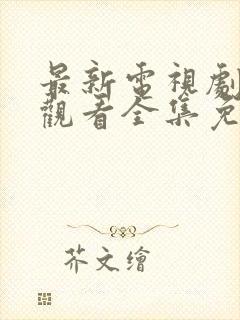 最新電視劇
觀看全集免
芥文繪